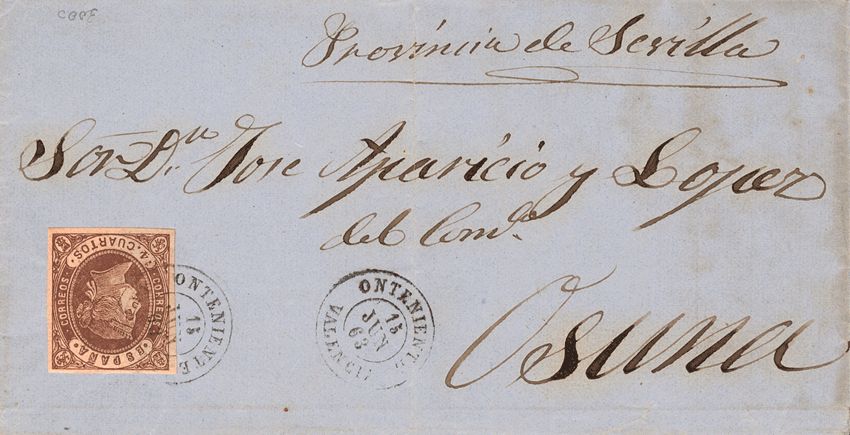 Provincia de Sevilla
Sor Dn. Jose Aparicio y Lopez
del Como.
Osuna
4. CUARTOS
CORREOS
CORREOS
ESPAÑA
ONTENIENTE
15
ONTENIENTE
15
JUN
63
VALENCIA